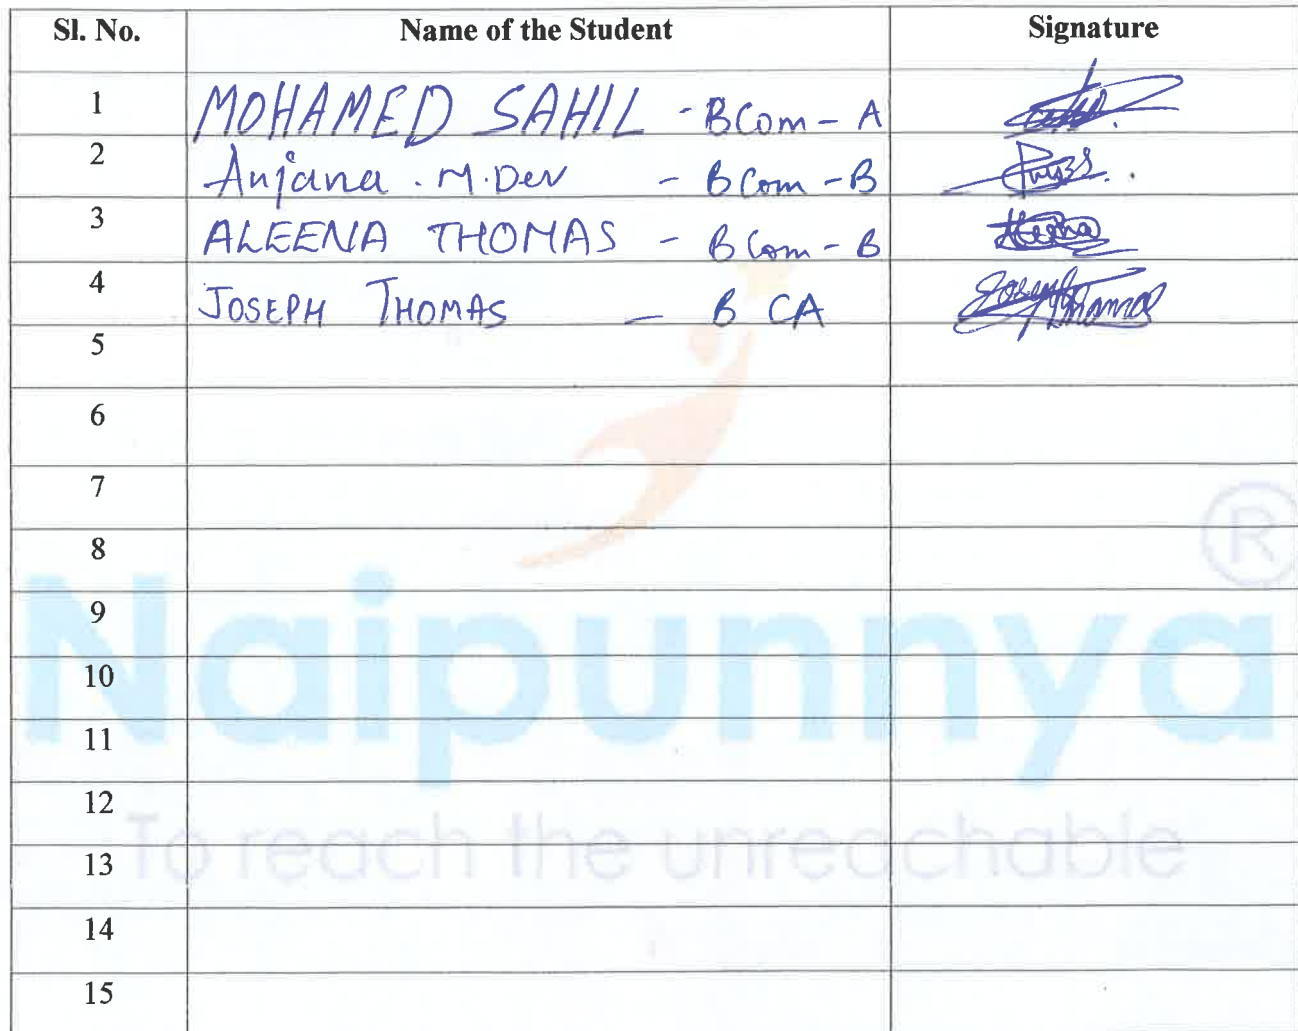 Sl. No. Name of the Student Signature
1 MOHAMED SAHIL - BCom - A
2 Anjana . M. Dev - BCom - B
3 ALEENA THOMAS - BCom - B
4 JOSEPH THOMAS - B CA Joseph Thomas
5
6
7
8
9
10
11
12
13
14
15
Naipunnya ®
To reach the unreachable